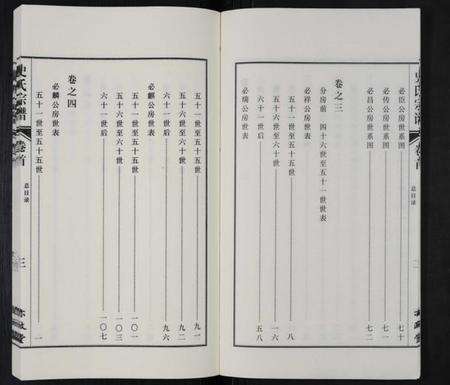 必臣公房世系图 七十
必传公房世系图 七一
必昌公房世系图 七二
卷之三
分房前 四十六世至五十一世世表 一
必祥公房世表
五十一世至五十五世 八
五十六世至六十世 一六
六十一世后 五八
必瑞公房世表
五十一世至五十五世 九一
五十六世至六十世 九二
六十一世后 九六
必麒公房世表
五十一世至五十五世 一〇一
五十六世至六十世 一〇三
六十一世后 一〇七
卷之四
必麟公房世表
五十一世至五十五世 一
史氏宗谱
卷首
总目录
三
史氏宗谱
卷首
总目录